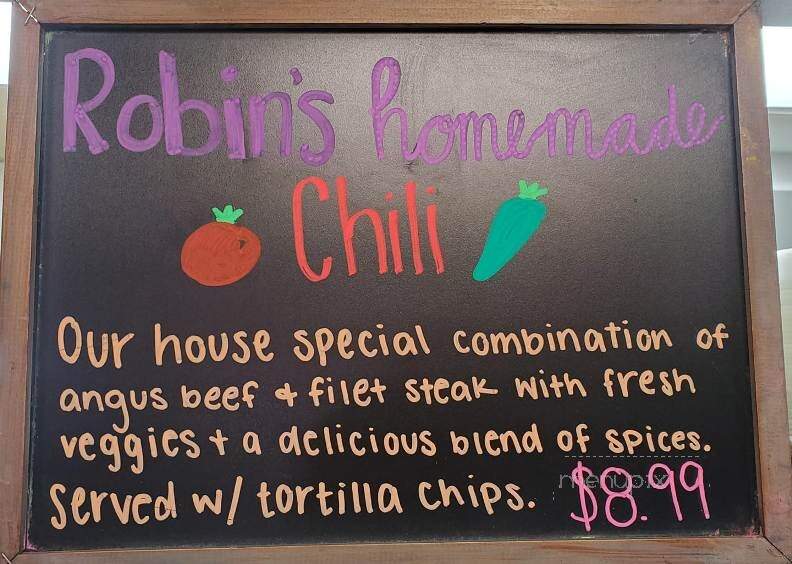 Robin's homemade
Chili
Our house special combination of
angus beef & filet steak with fresh
veggies + a delicious blend of spices.
served w/ tortilla chips. $8.99